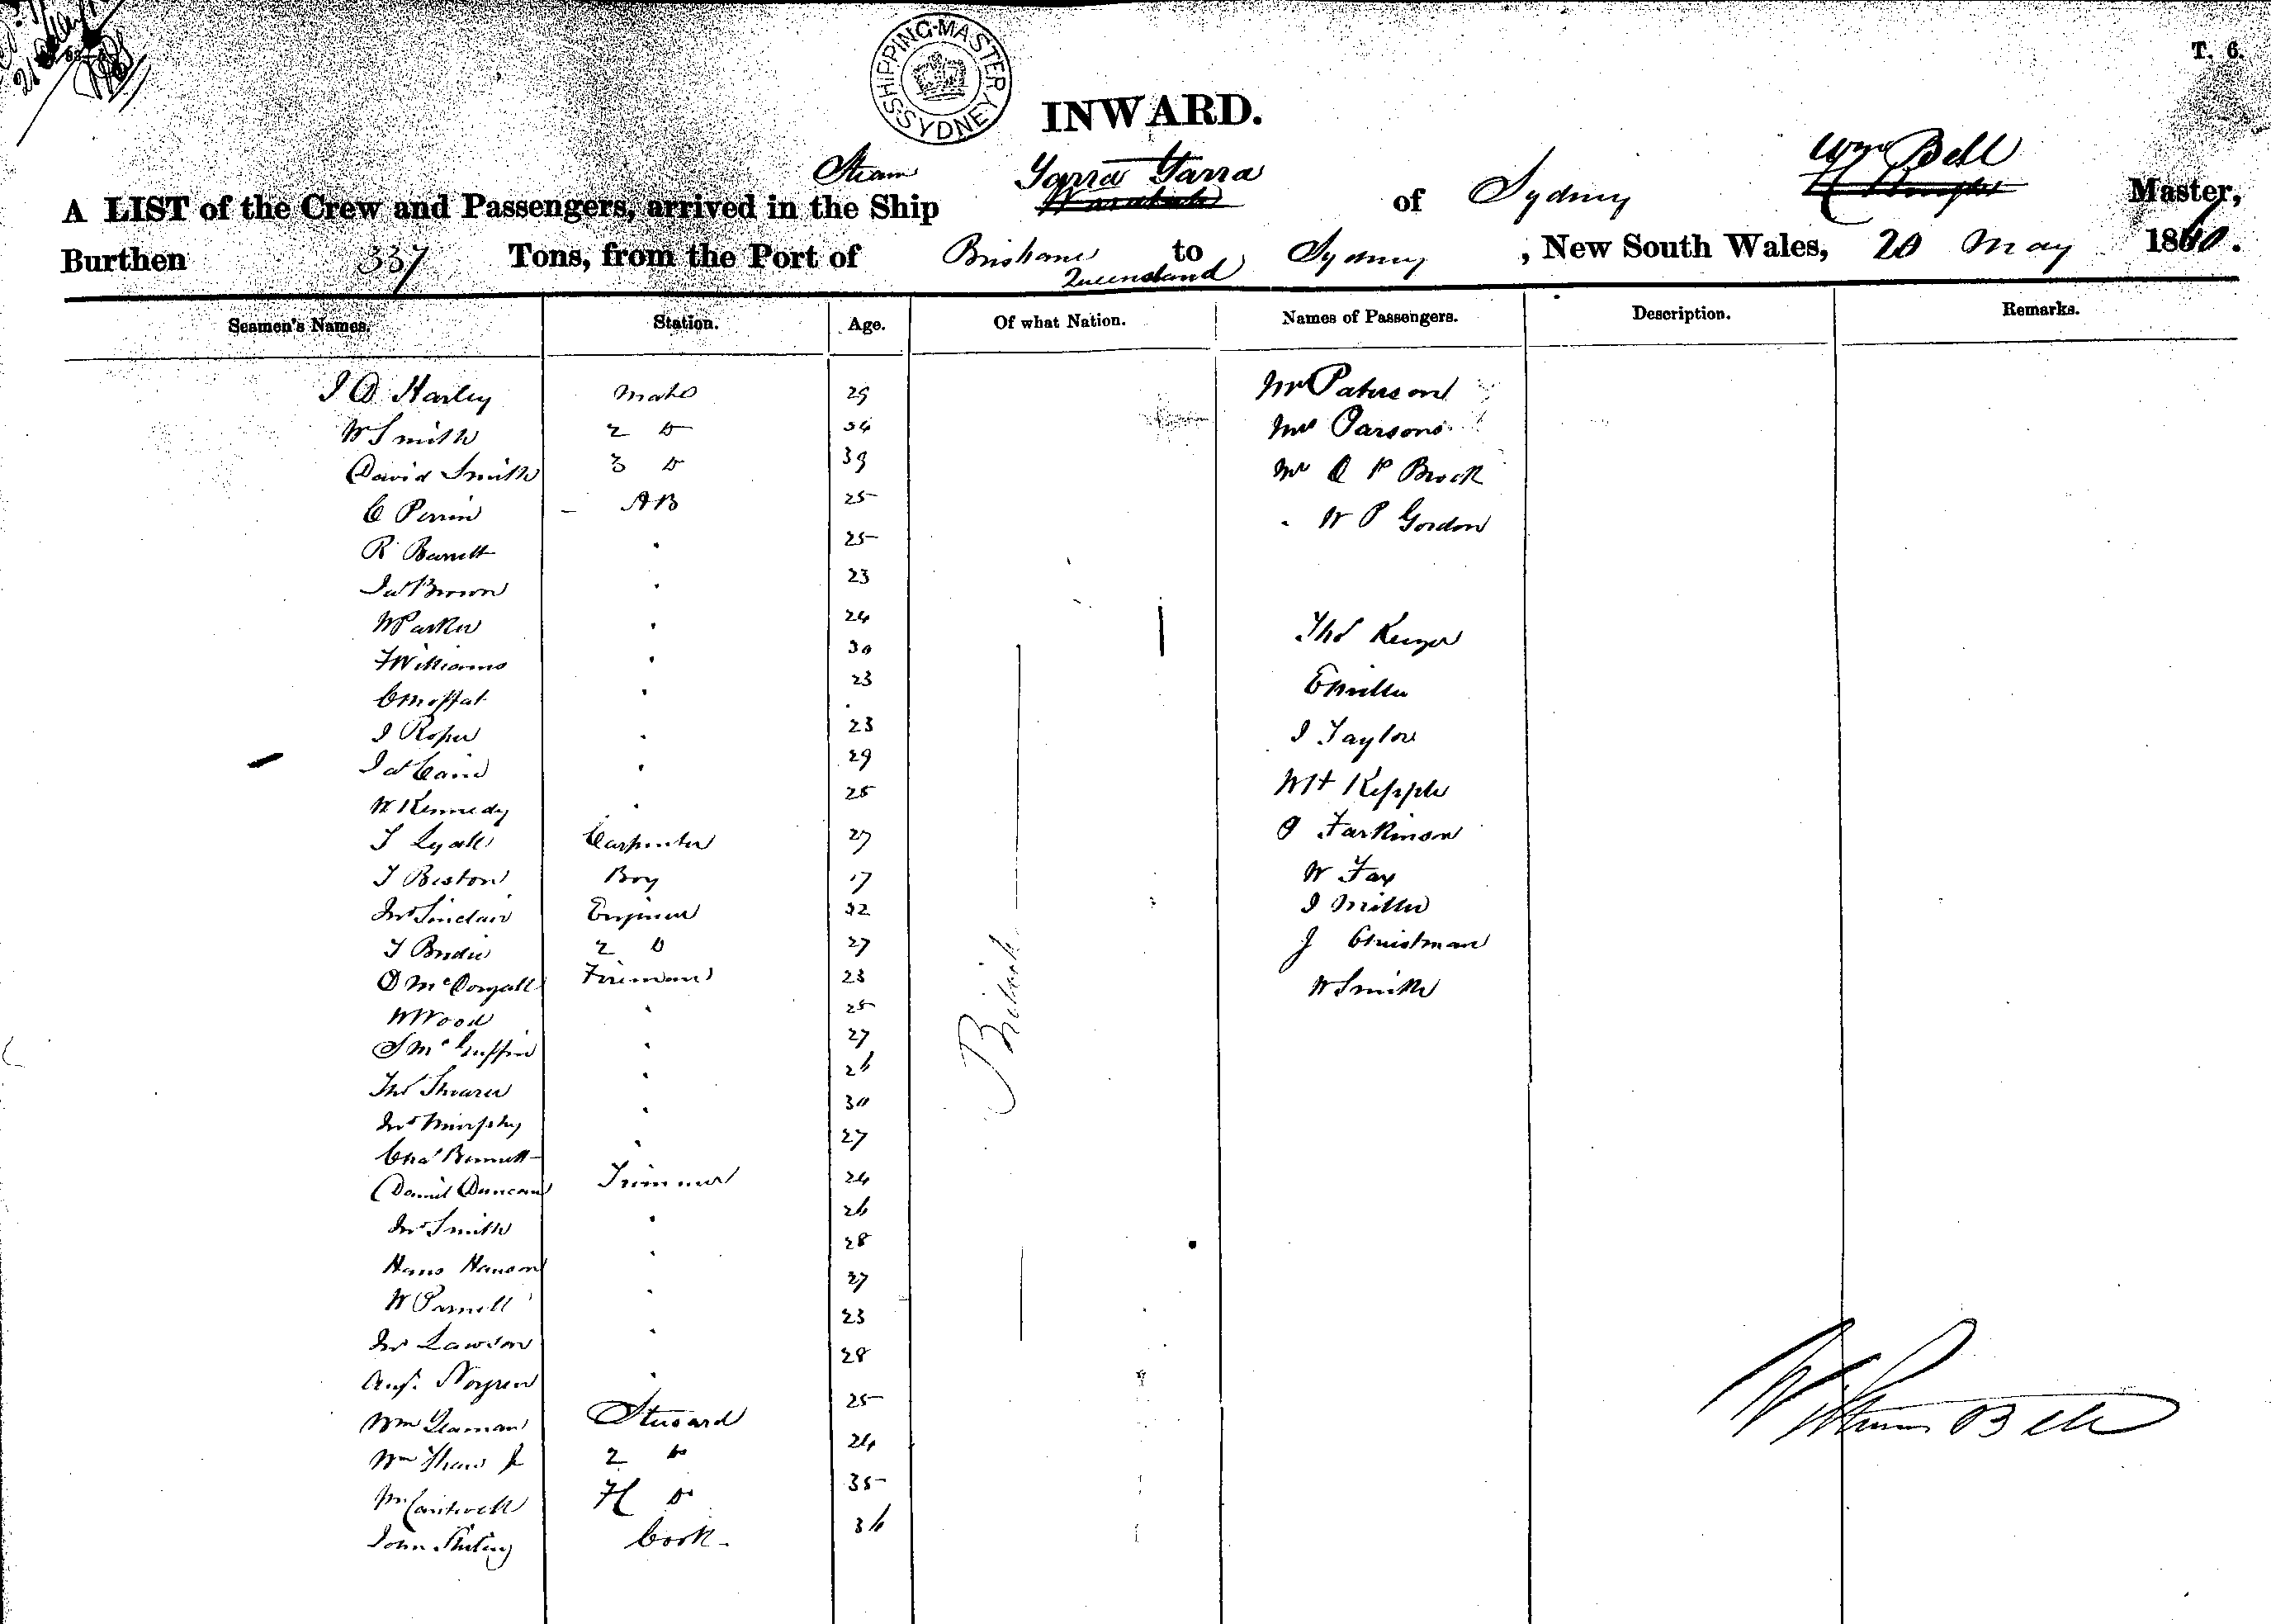 T. 6.
SHIPPING MASTER SYDNEY
INWARD.
Steam Yarra Yarra Wm Bell
A LIST of the Crew and Passengers, arrived in the Ship of Sydney Master,
Burthen 337 Tons, from the Port of Brisbane to Sydney, New South Wales, 20 May 1860.
Queensland
Seamen's Names. Station. Age. Of what Nation. Names of Passengers. Description. Remarks.
J D Harley Mate 29 Mr Paterson
W Smith 2 Do 34 Mrs Parsons
David Smith 3 Do 39 Mr P Brock
C Perrin - AB 25 " W P Gordon
R Barrett " 25
Jas Brown " 23
W Parker " 24 Thos
F Williams " 30
C Moffat " 23 E Miller
J Roper " 23 J Taylor
Jas Cain " 29
W Kennedy " 25 W H Kepple
T Lyall Carpenter 27 Farkinson
T Beston Boy 17 W Fax
Jno Sinclair Engineer 32 J Miller
T Brodie 2 Do 27 J Christman
D McDougall Fireman 23 W Smith
W Wood " 25
S McGuffin " 27
Thos Shearer " 26
Jno Murphy " 30
Chas Bennett " 27
Daniel Duncan Trimmer 24
Jno Smith " 26
Hans Hanson " 28
W Parnell " 27
Jno Lawson " 23
Norgren " 28
Wm Yeaman Steward 25
Wm 2 Do 24
Cantwell F C Do 35
John Cook 36
British
William Bell